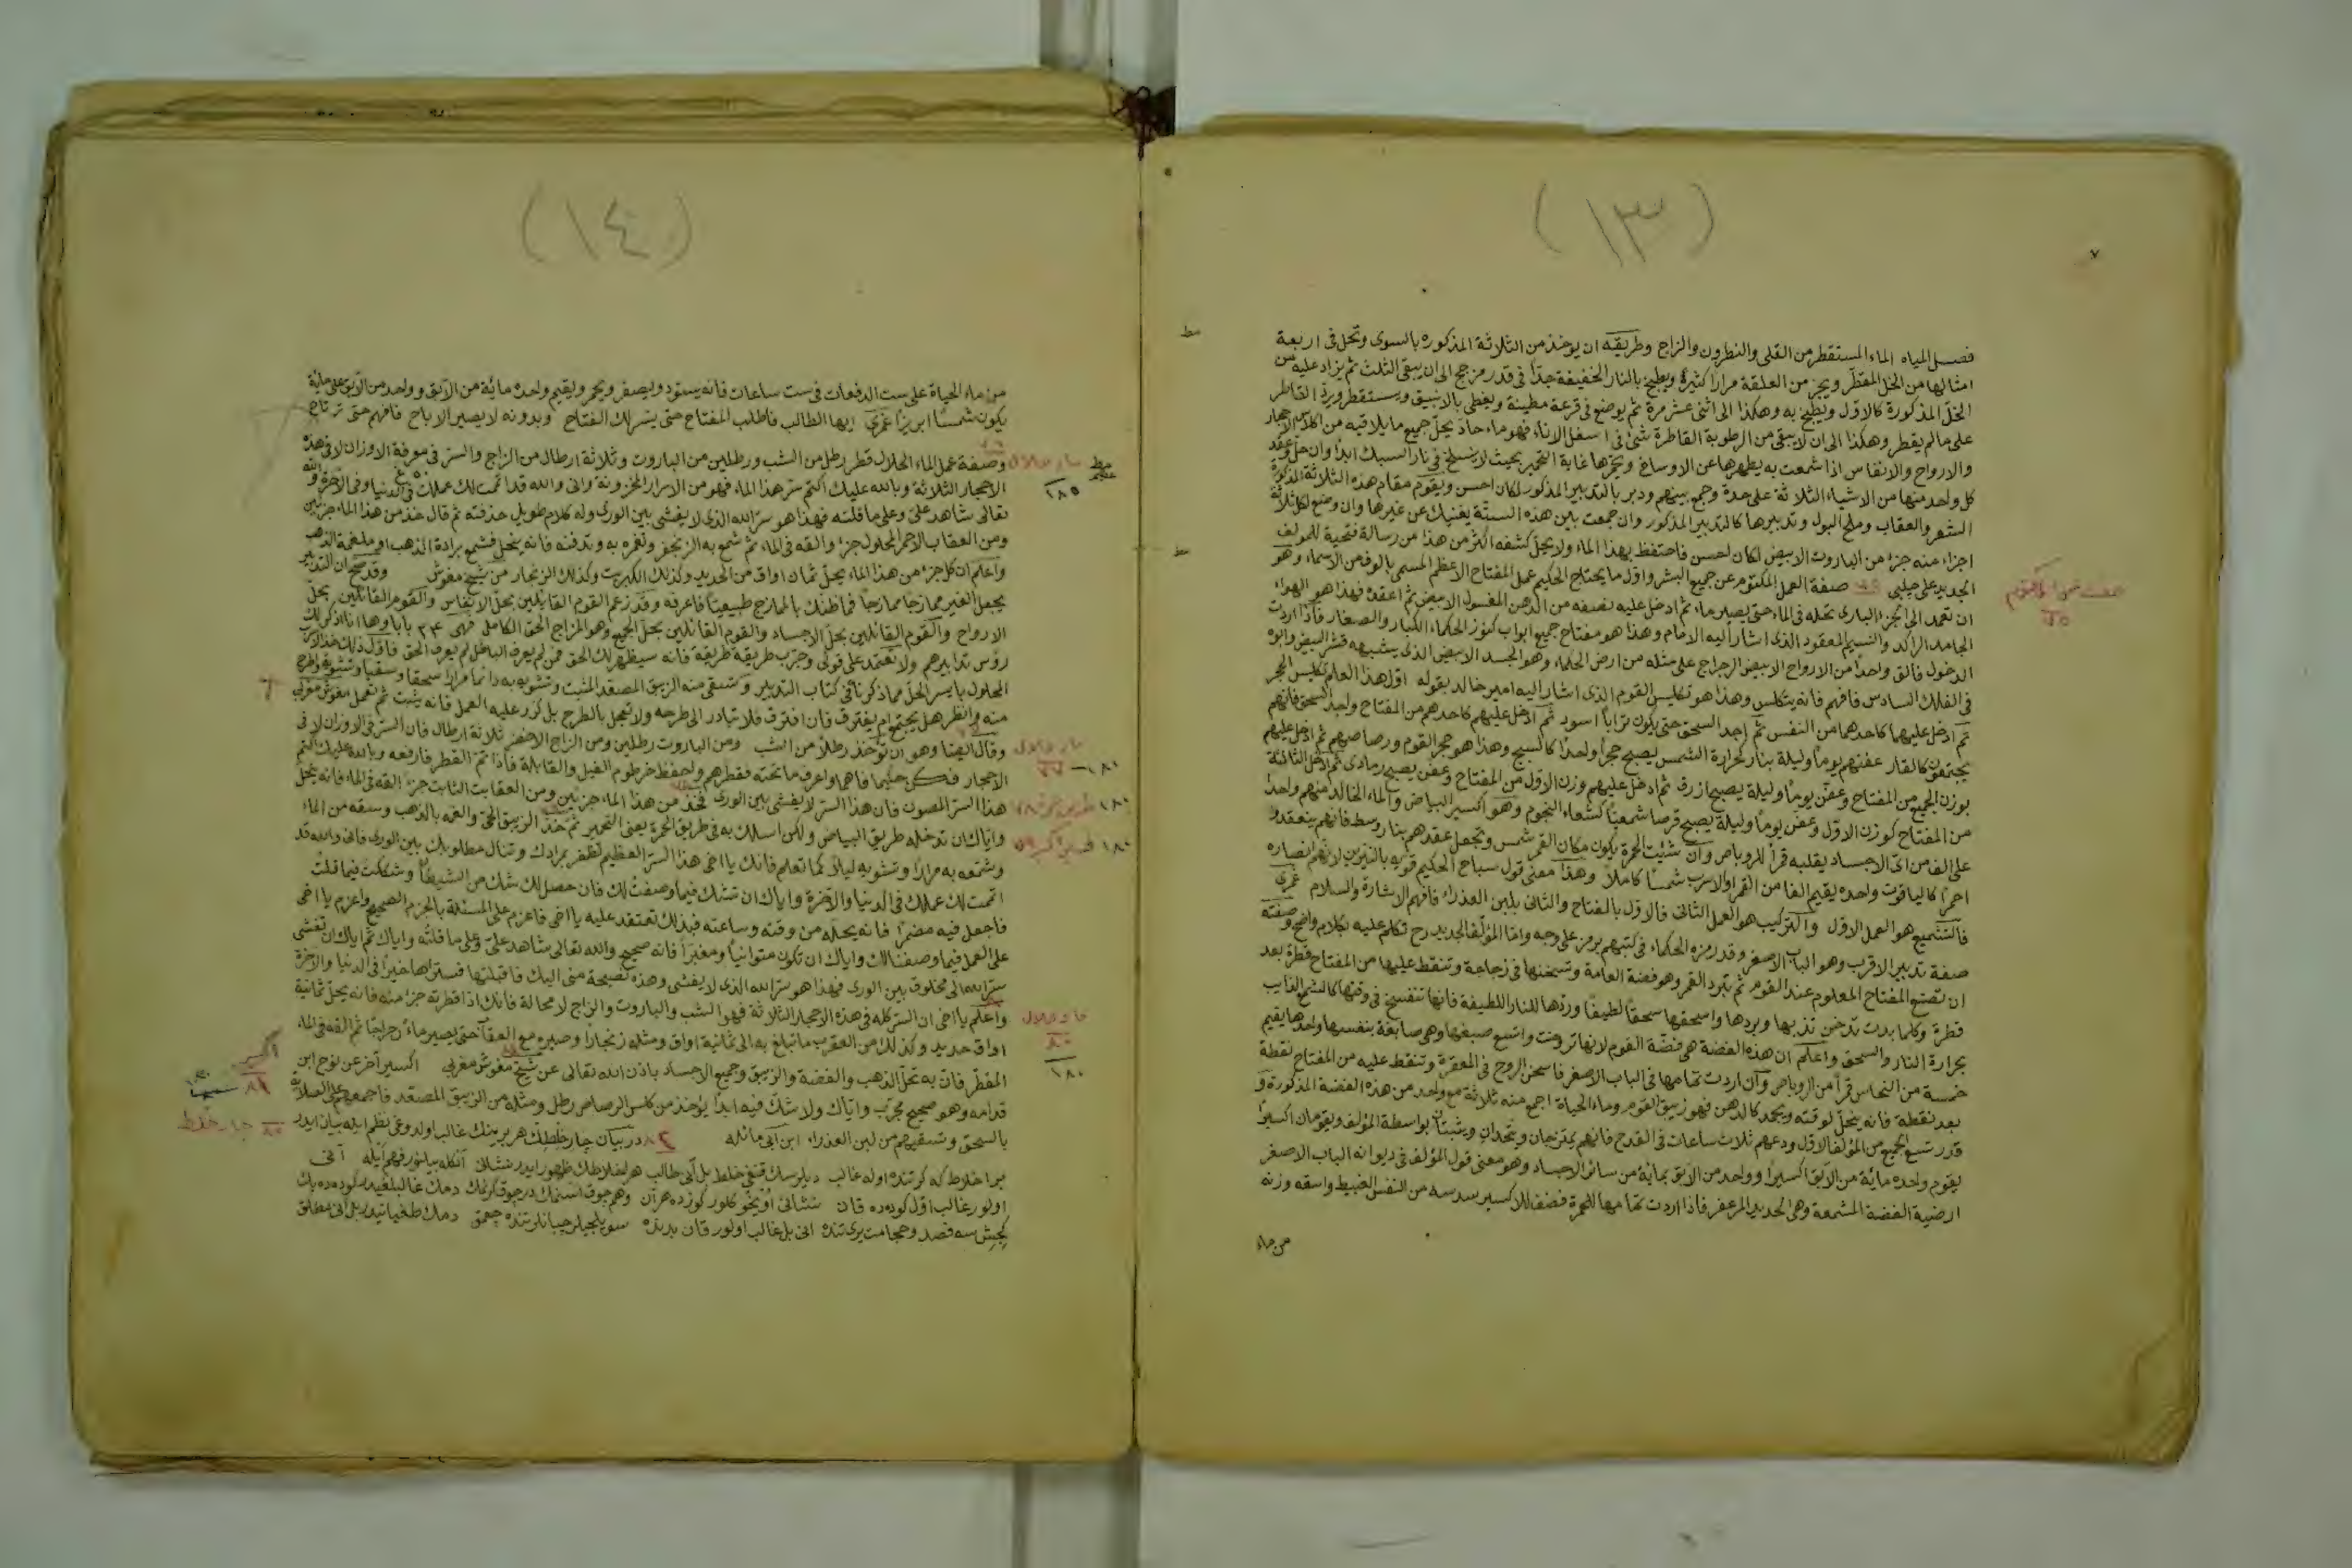 (١٣)
٧
فصل المياه الماء المستقطر من القلى والنطرون والزاج وطريقه ان يوخذ من الثلاثة المذكوره بالسوى وتحل فى اربعة
امثالها من الخل المقطّر ويجر من العلقة مرارا كثيرة ويطبخ بالنار الخفيفة جدّا فى قدر مزجج الى ان يبقى الثلث ثم يزاد عليه من
الخل المذكورة كالاوّل ويطبخ به وهكذا الى اثنى عشر مرة ثم يوضع فى قرعة مطينة ويغطى بالانبيق ويستقطر ويردّ القاطر
على مالم يقطر وهكذا الى ان لا يبقى من الرطوبة القاطرة شئ فى اسفل الاناء فهو ماء حاد يحلّ جميع ما يلاقيه من اكلاس الاحجار
والارواح والانفاس اذا شمعت به يطهرها عن الاوساخ ويحمّرها غاية التحمير بحيث لا ينسلخ فى نار السبك ابدا وان حلّ وعقد
كل واحد منها من الاشياء الثلاثة على حدة وجمع بينهم ودبر بالتدبير المذكور لكان احسن ويقوم مقام هذه الثلاثة المذكورة
الشعر والعقاب وملح البول وتدبيرها كالتدبير المذكور وان جمعت بين هذه الستّة يغنيك عن غيرها وان وضع لكل ثلاثة
اجزاء منه جزء من الباروت الابيض لكان احسن فاحتفظ بهذا الماء ولا يحلّ كشفه اكثر من هذا من رسالة فتحية للمولف
الجديد على چلبى صفة العمل المكتوم عن جميع البشر واوّل ما يحتاج الحكيم عمل المفتاح الاعظم المسمى بالوف من الاسماء وهو
ان تعمد الى الحجر البارى تحله فى الماء حتى يصير ماء ثم ادخل عليه نصفه من الدهن المغسول الابيض ثم اعقده فهذا هو الهواء
الجامد الراكد والنسيم المعقود الذى اشار اليه الامام وهذا هو مفتاح جميع ابواب كنوز الحكماء الكبار والصغار فاذا اردت
الدخول فالق واحدا من الارواح الابيض الزجاج على مثله من ارض الحكماء وهو الجسد الابيض الذى يشبه قشر البيض وابوه
فى الفلك السادس فافهم فانه يتكلس وهذا هو تكليس القوم الذى اشار اليه امير خالد بقوله اوّل هذا العلم تكليس الحجر
ثم ادخل عليها كاحدهما من النفس ثم اجد السحق حتى يكون ترابا اسود ثم ادخل عليهم كاحدهم من المفتاح واجد السحق فانهم
كالقار عفنهم يوما وليلة بنار كحرارة الشمس يصبح حجرا واحدا كالسبج وهذا هو حجر القوم ورصاصهم ثم ادخل عليهم
بوزن الجميع من المفتاح وعفن يوما وليلة يصبح ازرق ثم ادخل عليهم وزن الاول من المفتاح وعفن يصبح رمادى ثم ادخل الثالثة
من المفتاح كوزن الاوّل وعفن يوما وليلة يصبح قرصا شمعيّا كشعاء النجوم وهو اكسير البياض والماء الخالد منهم واحدا
على الف من اىّ الاجساد يقلبه قمرا للروباص وان شئت الحمرة يكون مكان القمر شمس وتجعل عقدهم بنار وسط فانهم ينعقدو
احمرا كالياقوت واحده يقيم الفا من القمر والاسرب شمسا كاملا وهذا معنى قول سباح الحكيم قويه بالنيرين لانهم انصاره
فالتشميع هو العمل الاول والتركيب هو العمل الثانى فالاول بالمفتاح والثانى بلبن العذراء فافهم الاشارة والسلام
صفة تدبير الاقرب وهو الباب الاصغر وقد رمزه الحكماء فى كتبهم برمز على وجه واما المؤلّف الجديد رح تكلم عليه بكلام واضح وصفته
ان تصنع المفتاح المعلوم عند القوم ثم تبرد القمر وهو فضة العامة وتسخنها فى زجاجة وتنقط عليها من المفتاح قطرة بعد
قطرة وكلما بدت تدخن وبردها واسحقها سحقا لطيفا وردّها للنار اللطيفة فانها تنفسخ فى وقتها كالشمع الذايب
بحرارة النار والسحق واعلم ان هذه الفضة هى فضّة القوم لانها ترونت واتسع صبغها وهى صابغة بنفسها واحدها يقيم
خمسة من النحاس قمرا من الروباص وان اردت تمامها فى الباب الاصغر فاسحن الروح فى المقعرة وتنقط عليه من المفتاح نقطة
بعد نقطة فانه ينحلّ لوقته ويجمد كالدهن فهو زيبق القوم وماء الحياة اجمع منه ثلاثة مع واحد من هذه الفضة المذكورة و
قدر تسع الجميع من المؤلف الاول ودعهم ثلاث ساعات فى القدح فانهم يمتزجان ويتحدان ويثبتان بواسطة المؤلف ويقومان اكسيرا
يقوم واحده مائة من الآبق اكسيرا وواحد من الابق بمائة من سائر الاجساد وهو معنى قول المؤلف فى ديوانه الباب الاصغر
ارضية الفضة المشمعة وهى الحديد المزعفر فاذا اردت تمامها للحمرة فضف للاكسير سدسه من النفس الغبيط واسقه وزنه
من ماء
(١٤)
من ماء الحياة على ست الدفعات فى ست ساعات فانه يسود ويصفر ويحمر ويقيم واحده مائة من الآبق وواحد من الآبق على مائة
يكون شمسا ابريزا ايها الطالب فاطلب المفتاح حتى يتسر لك الفتاح وبدونه لا يصير الارباح فافهم حتى ترتاح
وصفة عمل الماء الحلال قطر رطل من الشب ورطلين من الباروت وثلاثة ارطال من الزاج والسر فى معرفة الاوزان لا فى هذه
الاحجار الثلاثة وبالله عليك اكتم سرّ هذا الماء فهو من الاسرار المخزونة وانى والله قد اتممت لك عملك فى الدنيا وفى الاخرة والله
تعالى شاهد علىّ وعلى ما قلته فهذا هو سرّ الله الذى لا يفشى بين الورى وله كلام طويل حذفته ثم قال خذ من هذا الماء جزئين
ومن العقاب الاحمر المحلول جزء والقه فى الماء ثم شمع به الزنجفر وتغمره به وتدفنه فانه ينحل فشمع برادة الذهب او ملغمة الذهب
واعلم ان كل جزء من هذا الماء يحلّ ثمان اواق من الحديد وكذلك الكبريت وكذلك الزنجار من شيخ مغوش وقد صح ان التدبير
يجعل الغير ممازجا ممازجا فما ظنك بالممازج طبيعيّا فاعرفه وقد زعم القوم القائلين بحلّ الانفاس والقوم القائلين بحلّ
الارواح والقوم القائلين بحلّ الاجساد والقوم القائلين بحلّ الجميع وهو المزاج الحق الكامل فهى ٢٤ بابا وها انا اذكر لك
رؤس تدابيرهم ولا تعتمد على قولى وجرّب طريقة طريقة فانه سيظهر لك الحق فمن لم يعرف الباطل لم يعرف الحق فاوّل ذلك خذ الارض
المحلول بايسر الحلّ مما ذكرنا فى كتاب التدبير وتسقى منه الزيبق المصعّد المثبت وتشويه به دائما مرارا سحقا وسقيا وتشوية واطرح
منه وانظر هل يجتمع ام يفترق فان افترق فلا تبادر الى طرحه ولا تعجل بالطرح بل كرر عليه العمل فانه يثبت ثم تعمل مغوش مغربى
وقال ايضا وهو ان توخذ رطلا من الشب ومن الباروت رطلين ومن الزاج الاخضر ثلاثة ارطال فان السر فى الاوزان لا فى
الاحجار فكن حكيما فاهما واعرف ما تحته فقطرهم واحفظ خرطوم الفيل والقابلة فاذا تم القطر فارفعه وبالله عليك اكتم
هذا السرّ المصون فان هذا السرّ لا يفشى بين الورى فخذ من هذا الماء جزئين ومن العقاب الثابت جزء القه فى الماء فانه ينحل
واياك ان تدخله طريق البياض ولكن اسلك به فى طريق الحمرة يعنى التحمير ثم خذ الزيبق الحىّ والغمه بالذهب وسقه من الماء
وشمّعه به مرارا وتشويه ليلا كما تعلم فانك يا اخى هذا السرّ العظيم تظفر بمرادك وتنال مطلوبك بين الورى فانى والله قد
اتممت لك عملك فى الدنيا والآخرة واياك ان تشك فيما وصفت لك فان حصل لك شك من الشيطان وشككت فيما قلت
فاجعل فيه مضمرا فانه يحله من وقته وساعته فبذلك تعتقد عليه يا اخى فاعزم على المسئلة بالجزم الصحيح واعزم يا اخى
على العمل فيما وصفنا لك واياك ان تكون متوانيا ومغبرا فانه صحيح والله تعالى شاهد علىّ وعلى ما قلته واياك ثم اياك ان تفشى
سرّ الله الى مخلوق بين الورى فهذا هو سرّ الله الذى لا يفشى وهذه نصيحة منى اليك فاقبلتها فسترى بها خيرا فى الدنيا والاخرة
واعلم يا اخى ان السرّ كله فى هذه الاحجار الثلاثة فهو الشب والباروت والزاج لا محالة فانك اذا قطرته جزء منه فانه يحلّ ثمانية
اواق حديد وكذلك من العقرب ما تبلغ به الى ثمانية اواق ومثله زنجارا وصيره مع العقاب حتى يصير ماء رجراجا ثم القه فى الماء
المقطّر فان به تحلّ الذهب والفضة والزيبق وجميع الاجساد باذن الله تعالى عن شيخ مغوش مغربى اكسير آخر عن نوح ابن
قدامه وهو صحيح مجرّب واياك ولا شكّ فيه ابدا يوخذ من كلس الرصاص رطل ومثله من الزيبق المصعّد فاجمعهم على الصلاية
بالسحق وتسقيهم من لبن العذراء ابن ابى مائله ٨٢ در بيان چار خلطك هر برينك غالب اولدوغى نظم ايله بيان ايدر
بو اخلاط كه كر تنده اوله غالب ديلرسك قنغى خلط بل آنى طالب هر اخلاطك ظهور ايدر نشانى آنكله بيلنور فهم ايله آنى
اولور غالب اوّل كوده ده قان نشانى اويخو كلور كوزده هر آن
كچش سه فصد وحجامت يرى تنده انى بل غالب اولور قان بدنده سويلجيلر چبانلر تنده چقمق دمك طغيانيدر بل آنى مطلق
١٨٥
١٨٠
٧٧
١٨٠
١٨٠
٨٠
١٨٠
اكسير
٨١
چار خلط